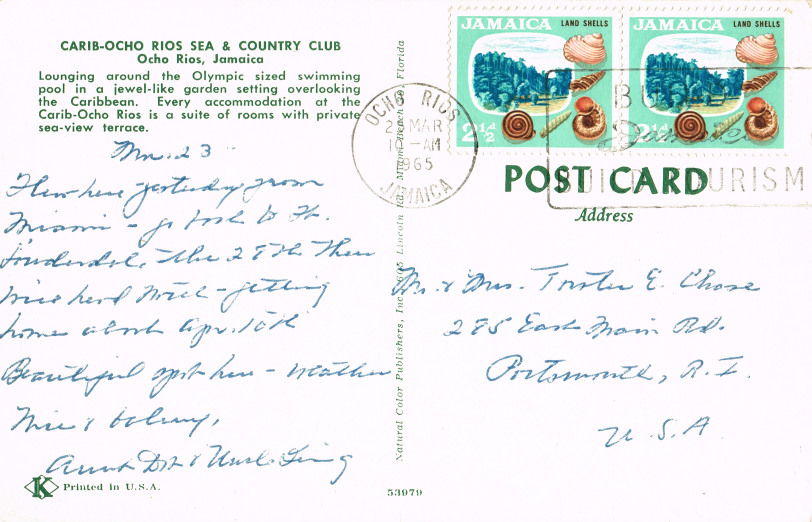 CARIB-OCHO RIOS SEA & COUNTRY CLUB
Ocho Rios, Jamaica
Lounging around the Olympic sized swimming
pool in a jewel-like garden setting overlooking
the Caribbean. Every accommodation at the
Carib-Ocho Rios is a suite of rooms with private
sea-view terrace.
Mar. 23
Flew here yesterday from
Miami - go back to Ft.
Lauderdale, the 28th. Then
home about Apr. 10th
Beautiful spot here - Weather
nice & balmy,
Aunt Dot & Uncle
Printed in U.S.A.
Natural Color Publishers, Inc., 1605 Lincoln Rd., Miami Beach 39, Florida
53979
JAMAICA LAND SHELLS
2½
JAMAICA LAND SHELLS
½
OCHO RIOS
MAR
AM
1965
JAMAICA
TOURISM
POST CARD
Address
Mr. & Mrs. Foster E. Chase
285 East Main Rd.
Portsmouth, R.I.
U.S.A.